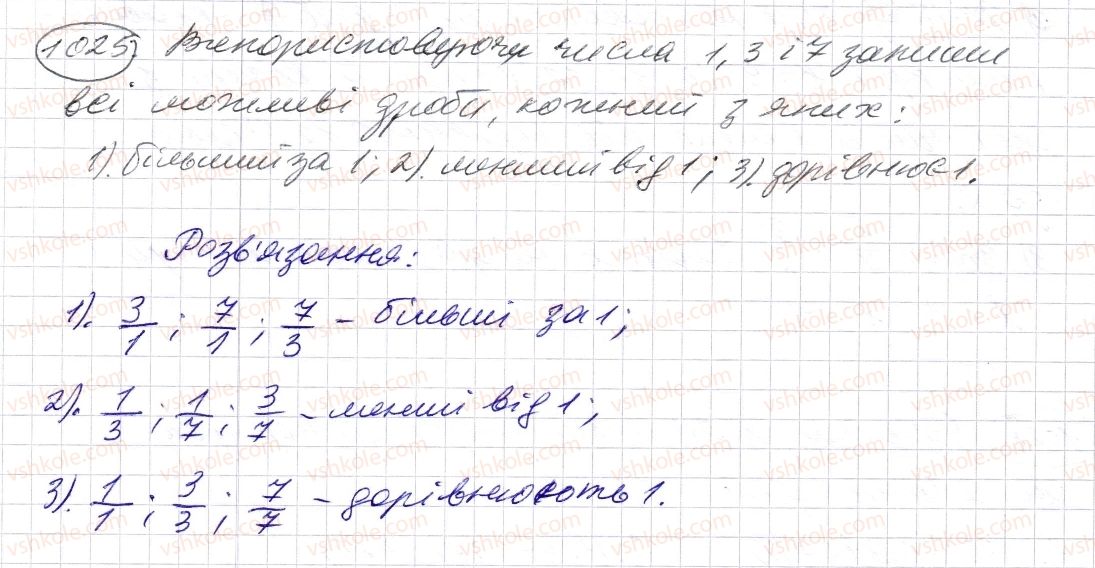 1025) Використовуючи числа 1, 3 і 7 запиши
всі можливі дроби, кожний з яких:
1). більший за 1; 2). менший від 1; 3). дорівнює 1.
Розв'язання:
1). 3/1 ; 7/1 ; 7/3 – більші за 1;
2). 1/3 ; 1/7 ; 3/7 – менші від 1;
3). 1/1 ; 3/3 ; 7/7 – дорівнюють 1.